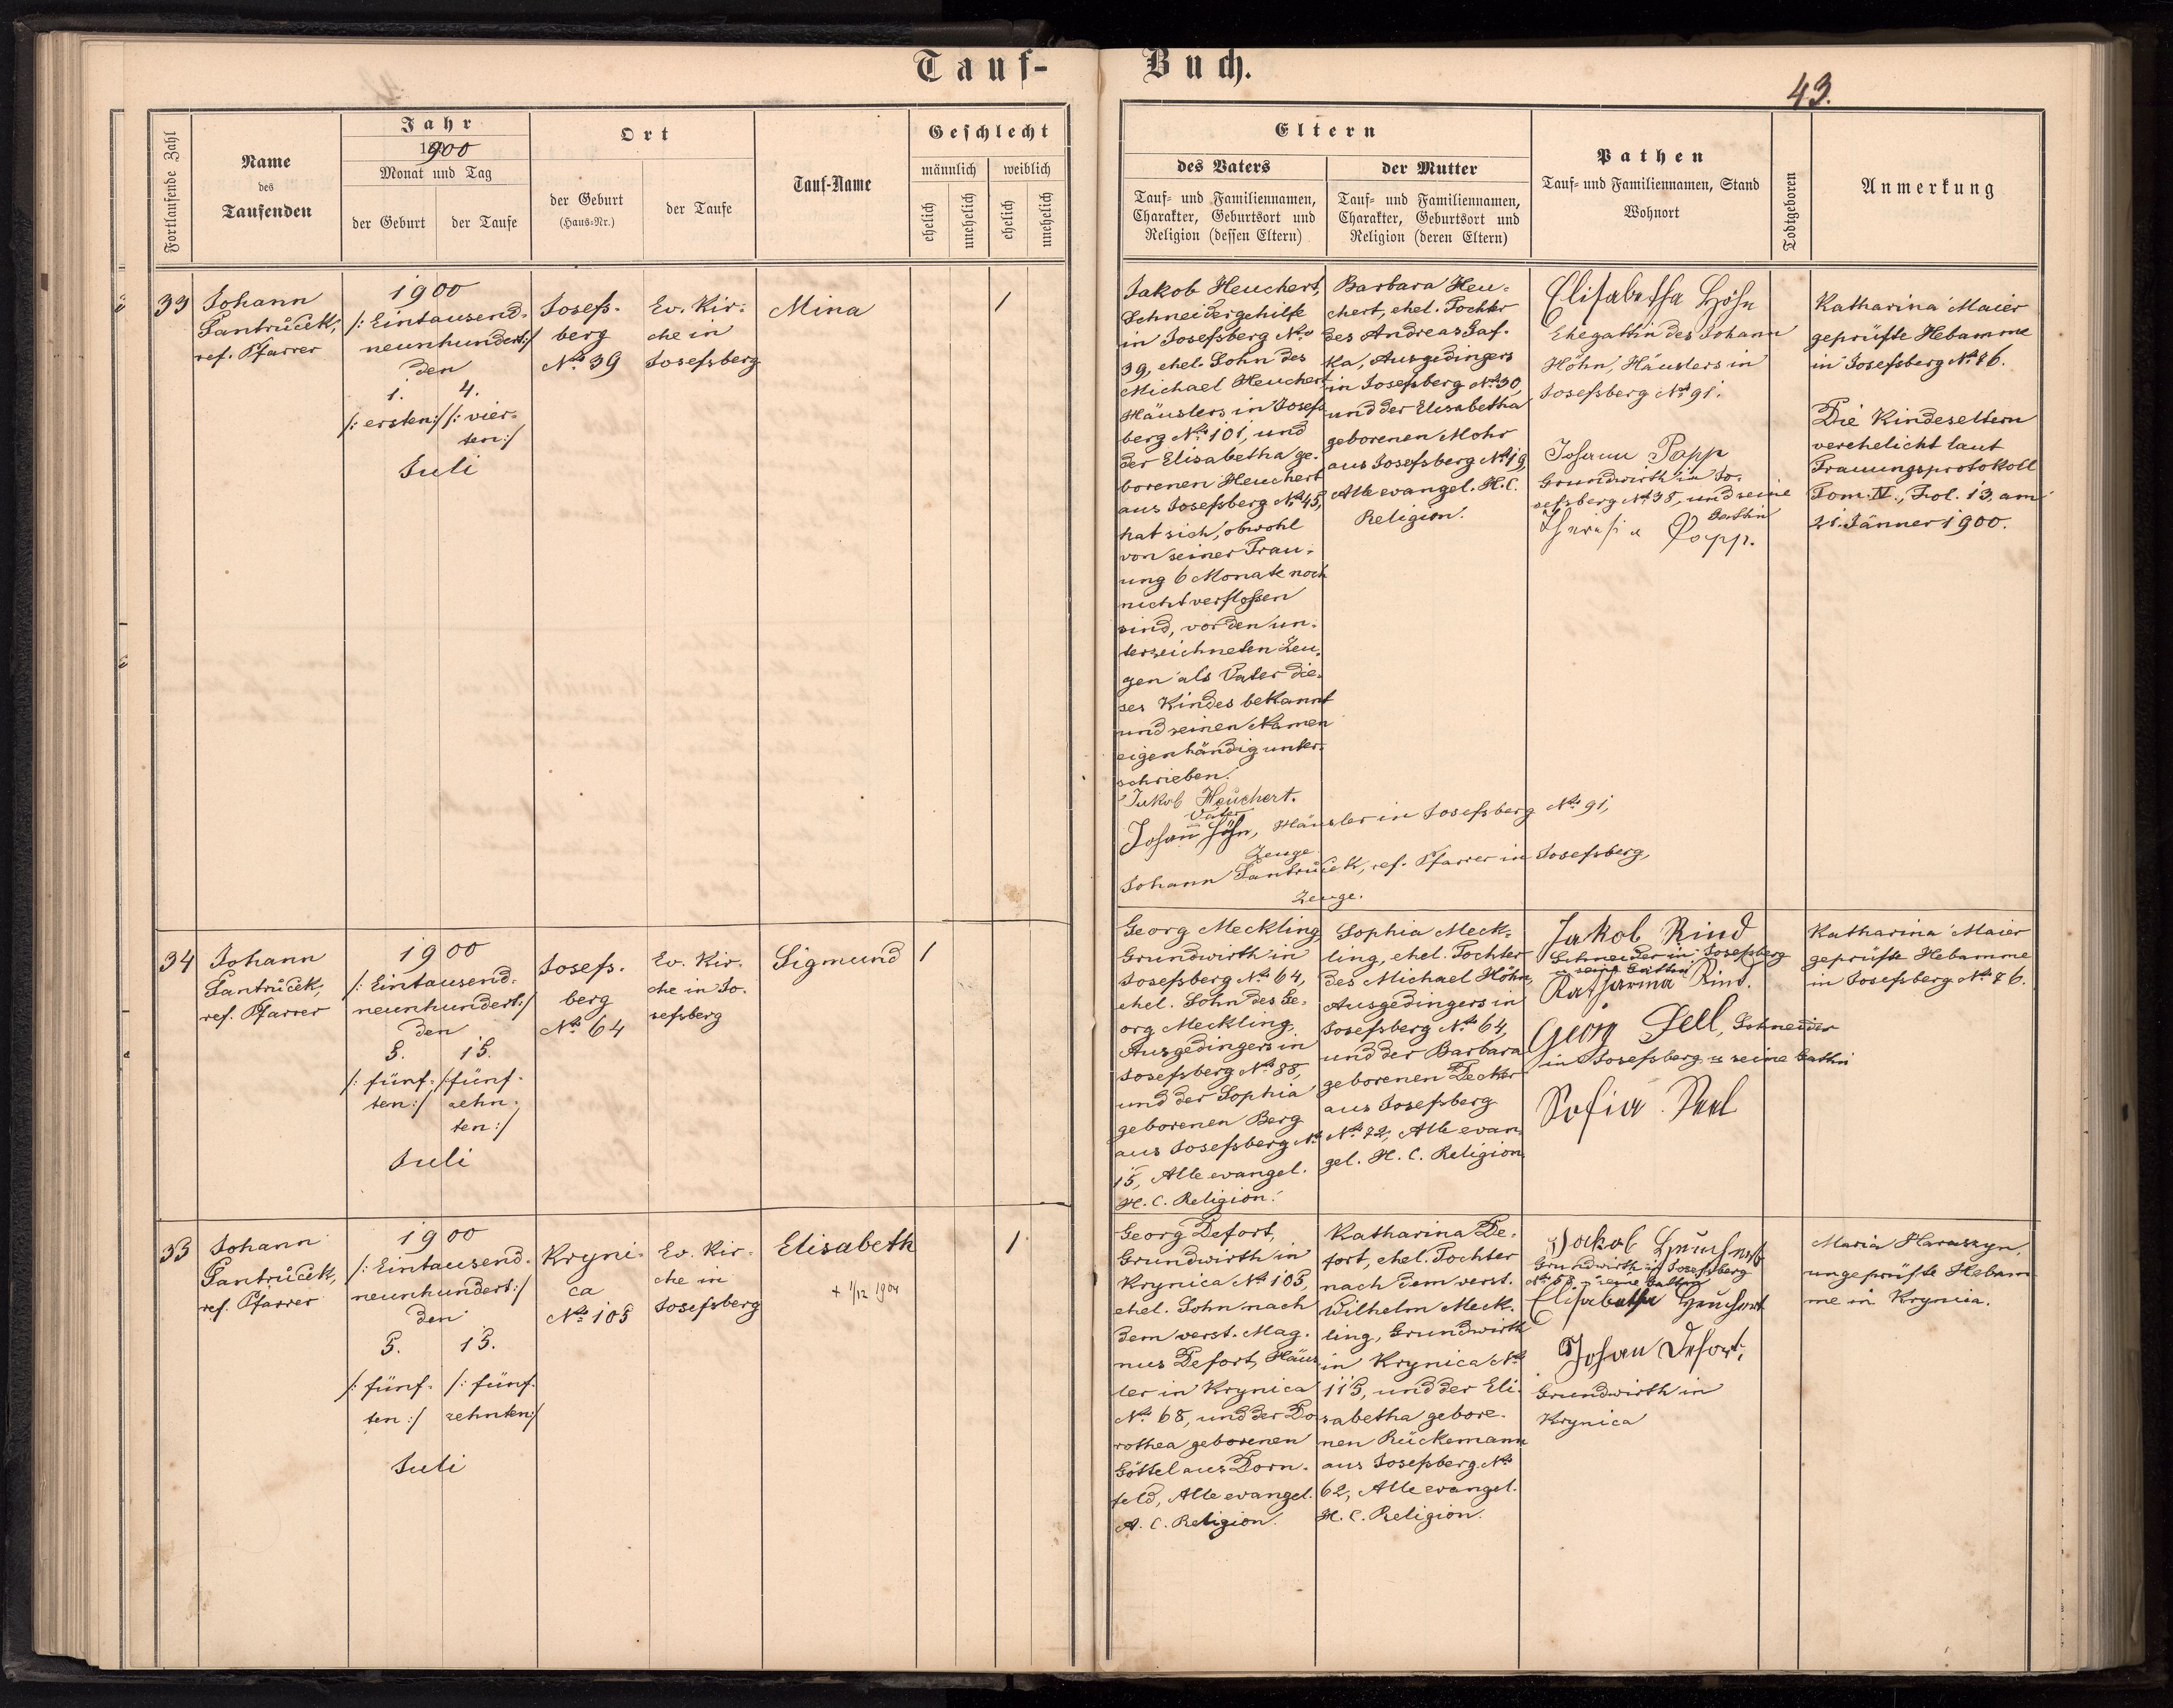 Tauf-
Buch.
43.
Fortlaufende Zahl
Name
des
Taufenden
Jahr
1900
Monat und Tag
der Geburt
der Taufe
Ort
der Geburt
(Haus-Nr.)
der Taufe
Tauf-Name
Geschlecht
männlich
weiblich
ehelich
unehelich
ehelich
unehelich
Eltern
des Vaters
Tauf- und Familiennamen,
Charakter, Geburtsort und
Religion (dessen Eltern)
der Mutter
Tauf- und Familiennamen,
Charakter, Geburtsort und
Religion (deren Eltern)
Pathen
Tauf- und Familiennamen, Stand
Wohnort
Todtgeboren
Anmerkung
33
Johann
Jantrůček,
ref. Pfarrer
1900
/: Eintausend-
neunhundert :/
den
1.
4.
/: ersten :/
/: vier-
ten :/
Juli
Josefs-
berg
No 39
Ev. Kir-
che in
Josefsberg
Mina
1
Jakob Heuchert,
Schneidergehilfe
in Josefsberg No
39, ehel. Sohn des
Michael Heuchert
Häuslers in Josefs
berg No 101, und
der Elisabetha ge-
borenen Heuchert
aus Josefsberg No 45,
hat sich, obwohl
von seiner Trau-
ung 6 Monate noch
nicht verflossen
sind, vor den un-
terzeichneten Zeu-
gen als Vater die-
ses Kindes bekannt
und seinen Namen
eigenhändig unter-
schrieben.
Jakob Heuchert.
Vater
Johann Höhn, Häusler in Josefsberg No 91,
Zeuge
Johann Jantrůček, ref. Pfarrer in Josefsberg,
Zeuge.
Barbara Heu-
chert, ehel. Tochter
des Andreas Gaf-
ka, Ausgedingers
in Josefsberg No 30,
und der Elisabetha
geborenen Mohr
aus Josefsberg No 19,
Alle evangel. H. C.
Religion.
Elisabetha Höhn
Ehegattin des Johann
Höhn, Häuslers in
Josefsberg No 91.
Johann Popp
Grundwirth in Jo-
sefsberg No 38, und seine
Gattin
Theresia Popp.
Katharina Maier
geprüfte Hebamme
in Josefsberg No 86.
Die Kindeseltern
verehelicht laut
Trauungsprotokoll
Tom. IV., Fol. 13, am
21. Jänner 1900.
34
Johann
Jantrůček,
ref. Pfarrer
1900
/: Eintausend-
neunhundert :/
den
5.
15.
/: fünf-
ten :/
/: fünf-
zehn-
ten :/
Juli
Josefs-
berg
No 64
Ev. Kir-
che in Jo-
sefsberg
Sigmund
1
Georg Meckling,
Grundwirth in
Josefsberg No 64,
ehel. Sohn des Ge-
org Meckling,
Ausgedingers in
Josefsberg No 88,
und der Sophia
geborenen Berg
aus Josefsberg No
15, Alle evangel.
H. C. Religion.
Sophia Meck-
ling, ehel. Tochter
des Michael Höhn,
Ausgedingers in
Josefsberg No 64,
und der Barbara
geborenen Decker
aus Josefsberg
No 72, Alle evan-
gel. H. C. Religion.
Jakob Rind
Schneider in Josefsberg
u. seine Gattin
Katharina Rind.
Georg Sell, Schneider
in Josefsberg u. seine Gattin
Sofia Sell
Katharina Maier
geprüfte Hebamme
in Josefsberg No 86.
35
Johann
Jantrůček,
ref. Pfarrer
1900
/: Eintausend-
neunhundert :/
den
5.
15.
/: fünf-
ten :/
/: fünf-
zehnten :/
Juli
Kryni-
ca
No 105
Ev. Kir-
che in
Josefsberg
Elisabeth
+ 1/12 1904
1
Georg Defort,
Grundwirth in
Krynica No 105,
ehel. Sohn nach
dem verst. Mag-
nus Defort, Häus
ler in Krynica
No 68, und der Do-
rothea geborenen
Göttel aus Dorn-
feld, Alle evangel.
A. C. Religion.
Katharina De-
fort, ehel. Tochter
nach dem verst.
Wilhelm Meck-
ling, Grundwirth
in Krynica No
115, und der Eli-
sabetha gebore-
nen Rückemann
aus Josefsberg No
62, Alle evangel.
H. C. Religion.
Jakob Heuchert
Grundwirth in Josefsberg
No 58 u. seine Gattin
Elisabetha Heuchert
Johan Defort,
Grundwirth in
Krynica
Maria Haraszyn,
ungeprüfte Hebam
me in Krynica.